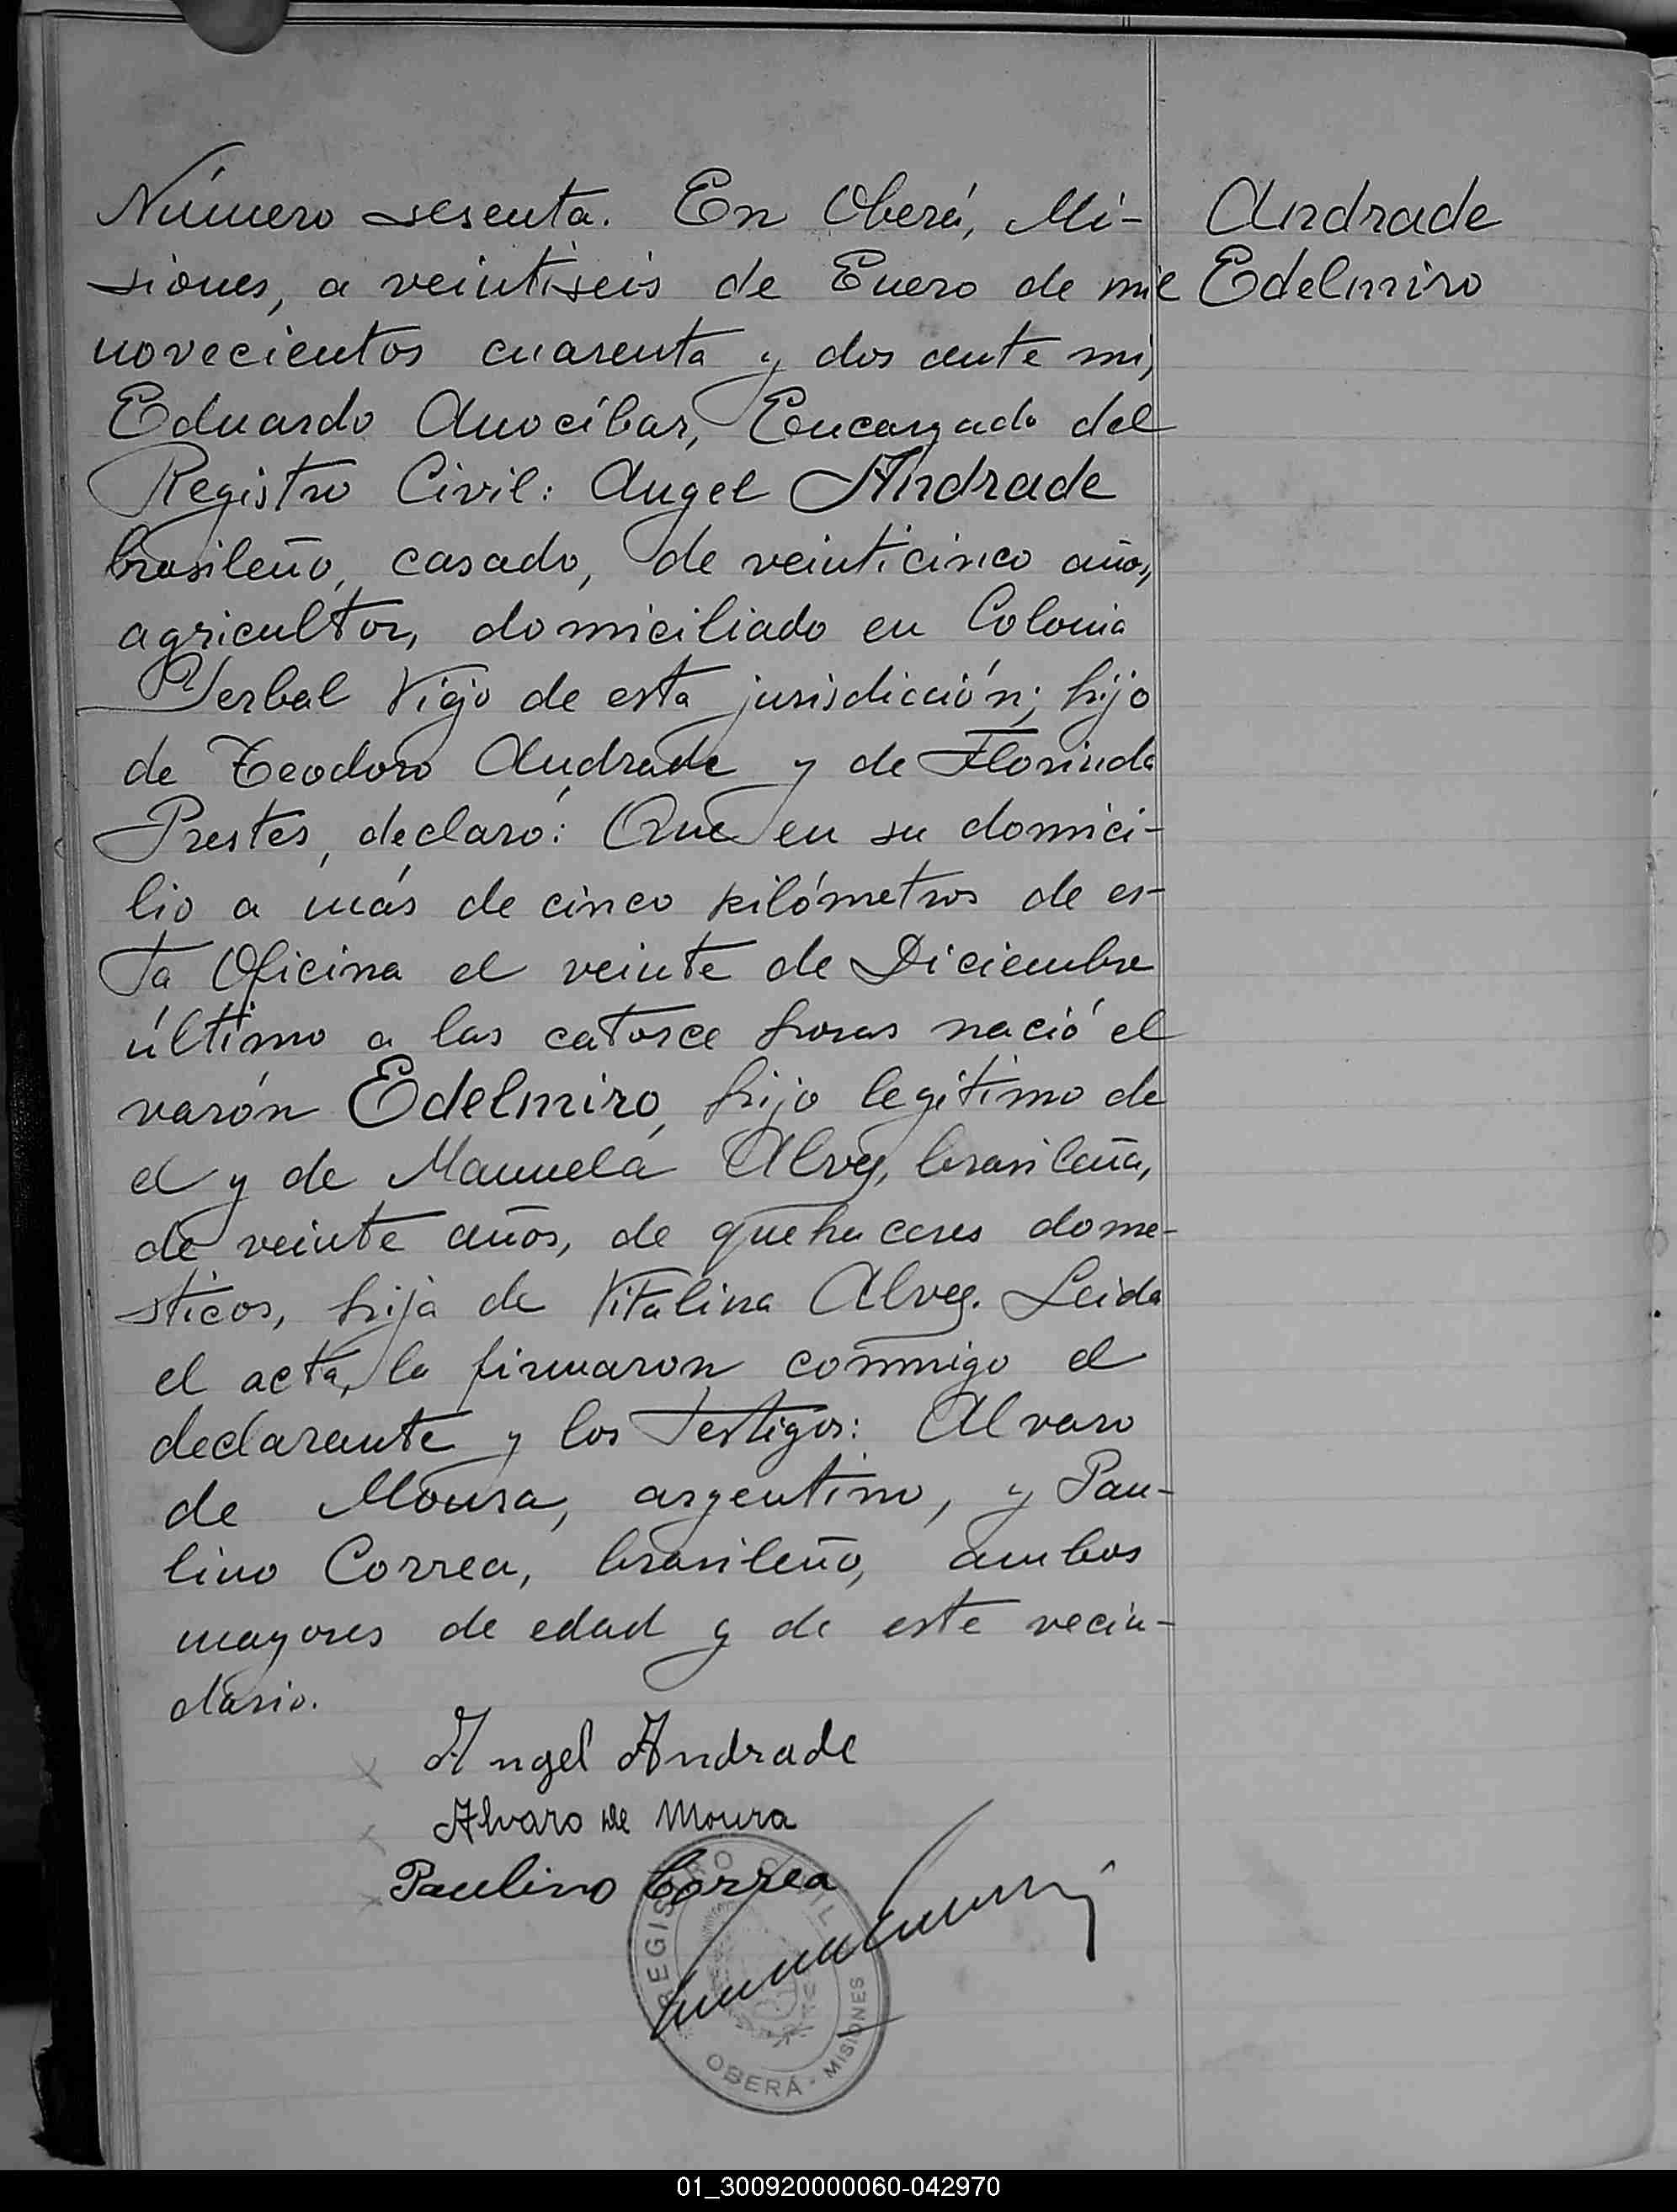 Número sesenta. En Oberá, Mi-
siones, a veintiseis de Enero de mil
novecientos cuarenta y dos ante mi,
Eduardo Anocíbar, Encargado del
Registro Civil: Angel Andrade
brasileño, casado, de veinticinco años,
agricultor, domiciliado en Colonia
Yerbal Viejo de esta jurisdicción; hijo
de Teodoro Andrade y de Florinda
Prestes, declaró: Que en su domici-
lio a más de cinco kilómetros de es-
ta Oficina el veinte de Diciembre
último a las catorce horas nació el
varón Edelmiro, hijo legítimo de
el y de Manuela Alves, brasileña,
de veinte años, de quehaceres dome-
sticos, hija de Vitalina Alves. Leida
el acta, la firmaron conmigo el
declarante y los testigos: Alvaro
de Moura, argentino, y Pau-
lino Correa, brasileño, ambos
mayores de edad y de este vecin-
dario.
Andrade
Edelmiro
Angel Andrade
Alvaro de Moura
Paulino Correa
REGISTRO CIVIL
OBERÁ - MISIONES
01_300920000060-042970